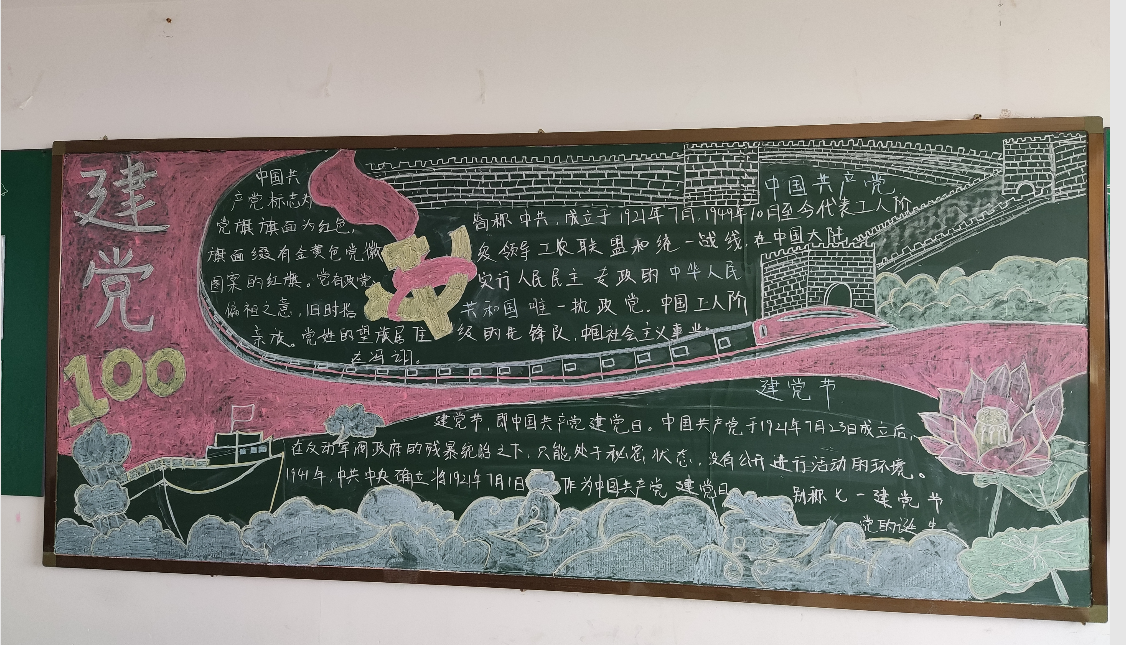 建党
100
中国共
产党标志为
党旗旗面为红色，
旗面缀有金黄色党徽
图案的红旗。党有政党、
偏袒之意，旧时指
亲族。党姓的望族居住
在冯翊。
中国共产党
简称中共，成立于1921年7月，1949年10月至今代表工人阶
级领导工农联盟和统一战线，在中国大陆
实行人民民主专政的中华人民
共和国唯一执政党。中国工人阶
级的先锋队，中国社会主义事业
建党节
建党节，即中国共产党建党日。中国共产党于1921年7月23日成立后，
在反动军阀政府的残暴统治之下，只能处于秘密状态，没有公开进行活动的环境。
1941年，中共中央确立将1921年7月1日作为中国共产党建党日
别称七一建党节
党的诞生